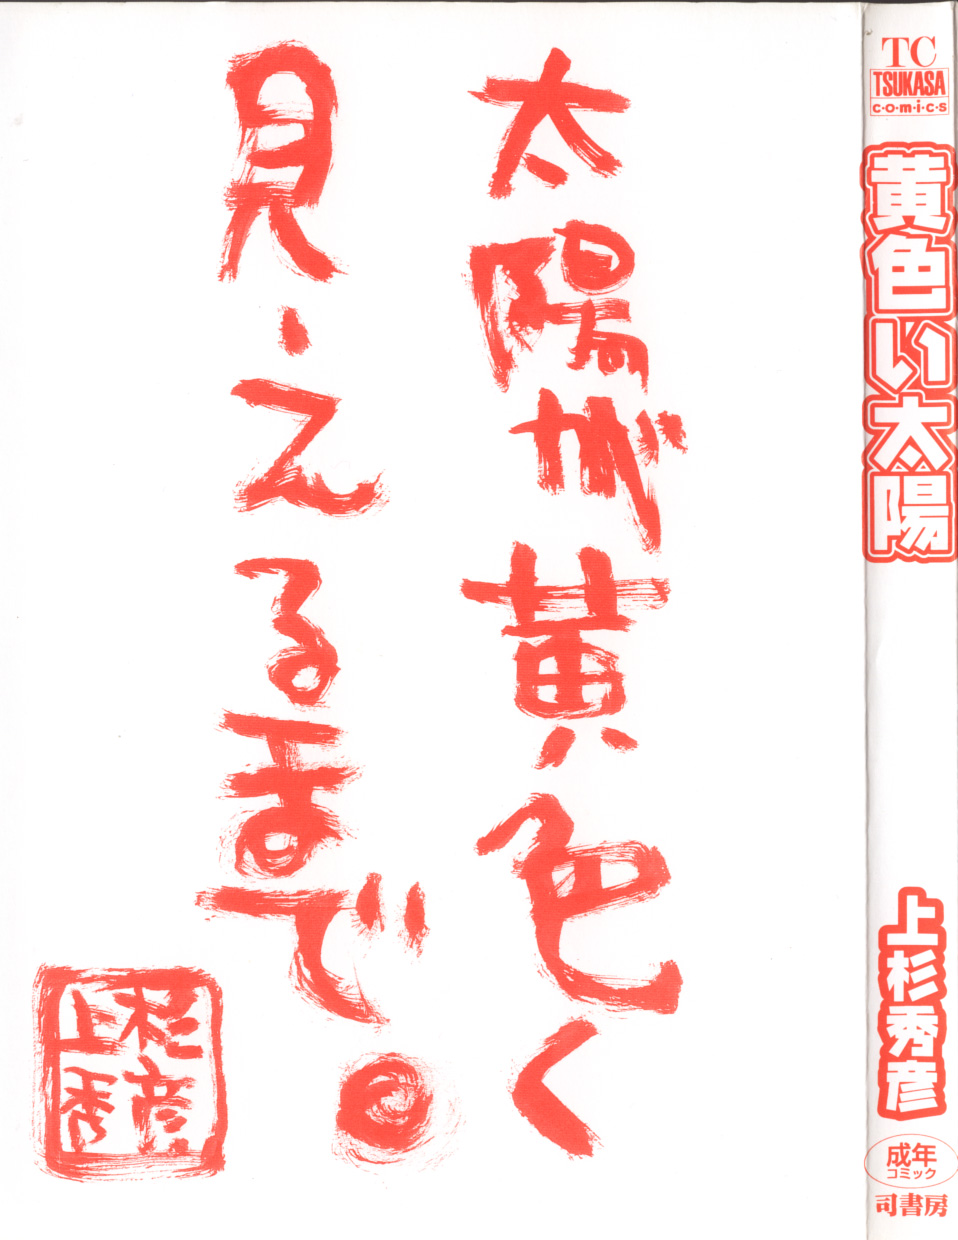 太陽が黄色く
見えるまで。
上杉
秀彦
TC
TSUKASA
c·o·m·i·c·s
黄色い太陽
上杉秀彦
成年
コミック
司書房